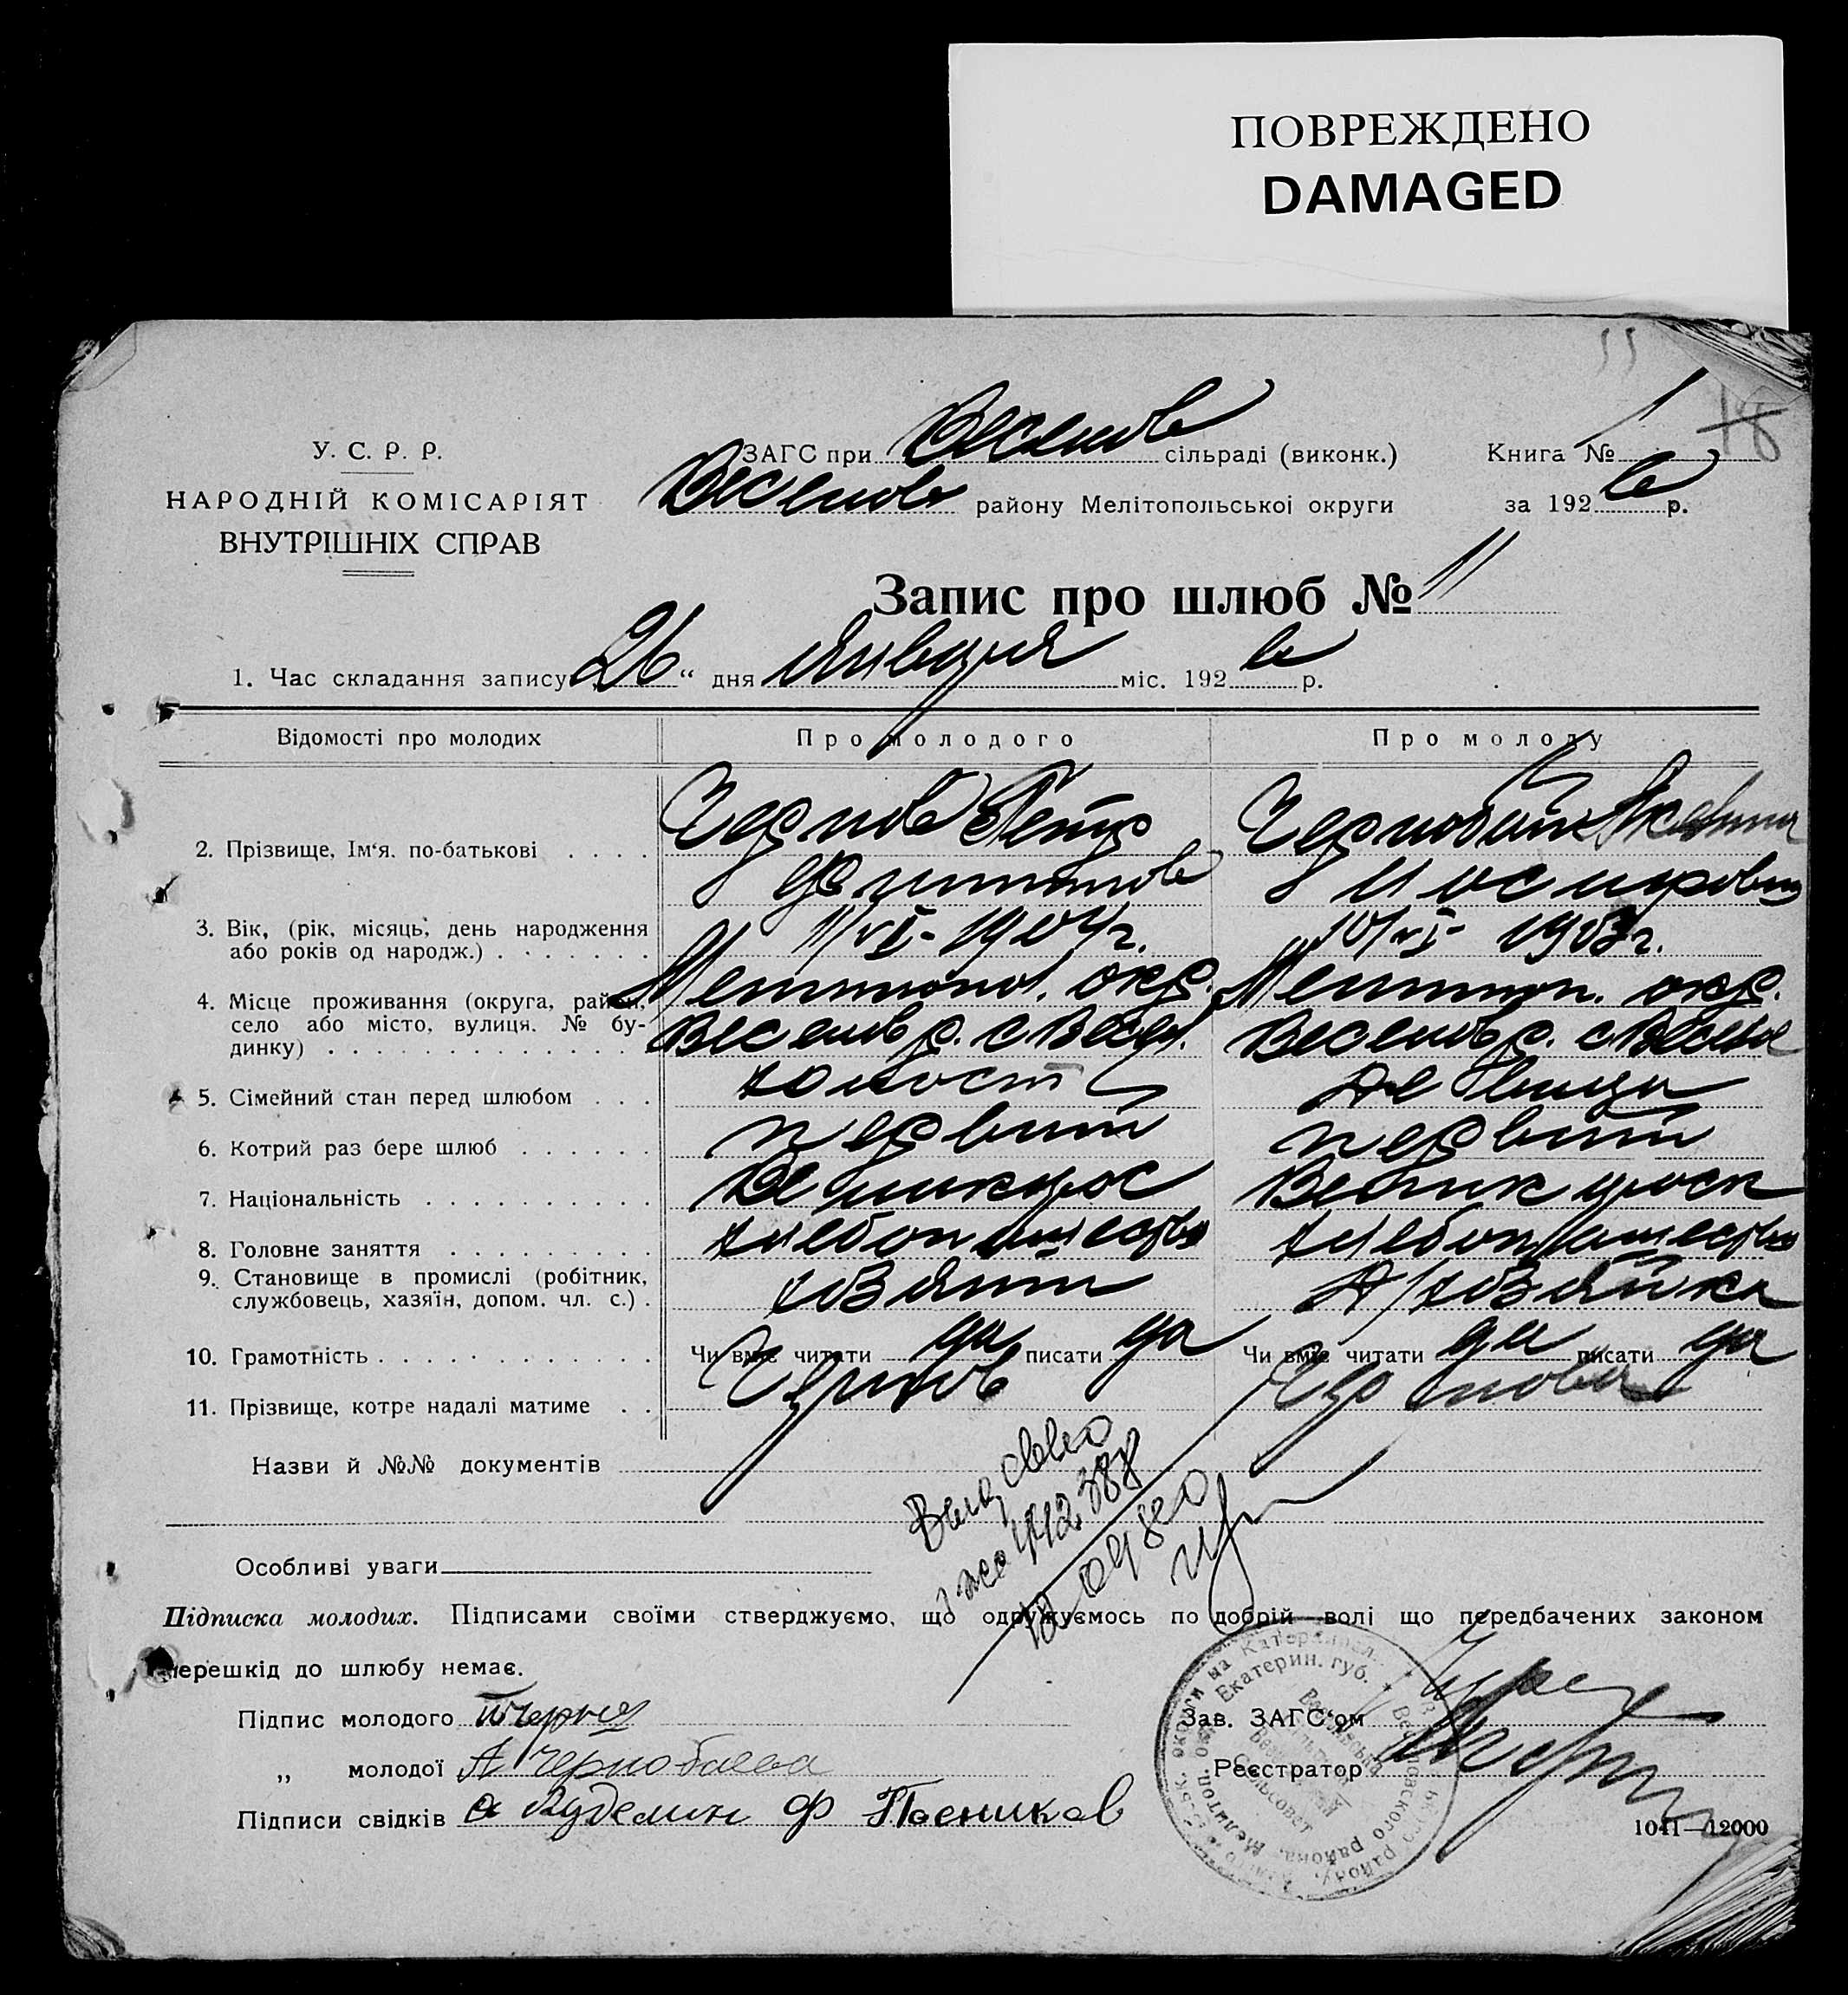 ПОВРЕЖДЕНО
DAMAGED
У. С. Р. Р.
НАРОДНІЙ КОМІСАРІЯТ
ВНУТРІШНІХ СПРАВ
ЗАГС при Веселов сільраді (виконк.)
Веселов району Мелітопольської округи
Книга № 1
18
за 1926 р.
Запис про шлюб № 11
1. Час складання запису 26 " дня января міс. 1926 р.
Відомості про молодих Про молодого Про молоду
2. Прізвище, Ім'я, по-батькові . . . . Чернов Петр
Чернобай
3. Вік, (рік, місяць, день народження
або років од народж.) . . . . . . . 11/VI- 1904 г. 10/VI- 1903 г.
4. Місце проживання (округа, район,
село або місто, вулиця, № бу-
динку) . . . . . . . . . . . . .
Мелитопол. окр. Мелитоп. окр.
Веселов р. с Весел. Веселов р. с Весел
5. Сімейний стан перед шлюбом . . . холост девица
6. Котрий раз бере шлюб . . . . . . первый первый
7. Національність . . . . . . . . . . Великорос Великороск
8. Головне заняття . . . . . . . . . хлебопашество хлебопашество
9. Становище в промислі (робітник,
службовець, хазяїн, допом. чл. с.) . хозяин д/хозяйка
10. Грамотність . . . . . . . . . . . . Чи вміє читати да писати да Чи вміє читати да писати да
11. Прізвище, котре надалі матиме . . Чернов Чернова
Назви й №№ документів
Особливі уваги
Підписка молодих. Підписами своїми стверджуємо, що одружуємось по добрій волі що передбачених законом
перешкід до шлюбу немає.
Підпис молодого
„ молодої А Чернобаева
Підписи свідків Ф
Зав. ЗАГС'ом
Реєстратор
Екатерин. губ.
1041—12000